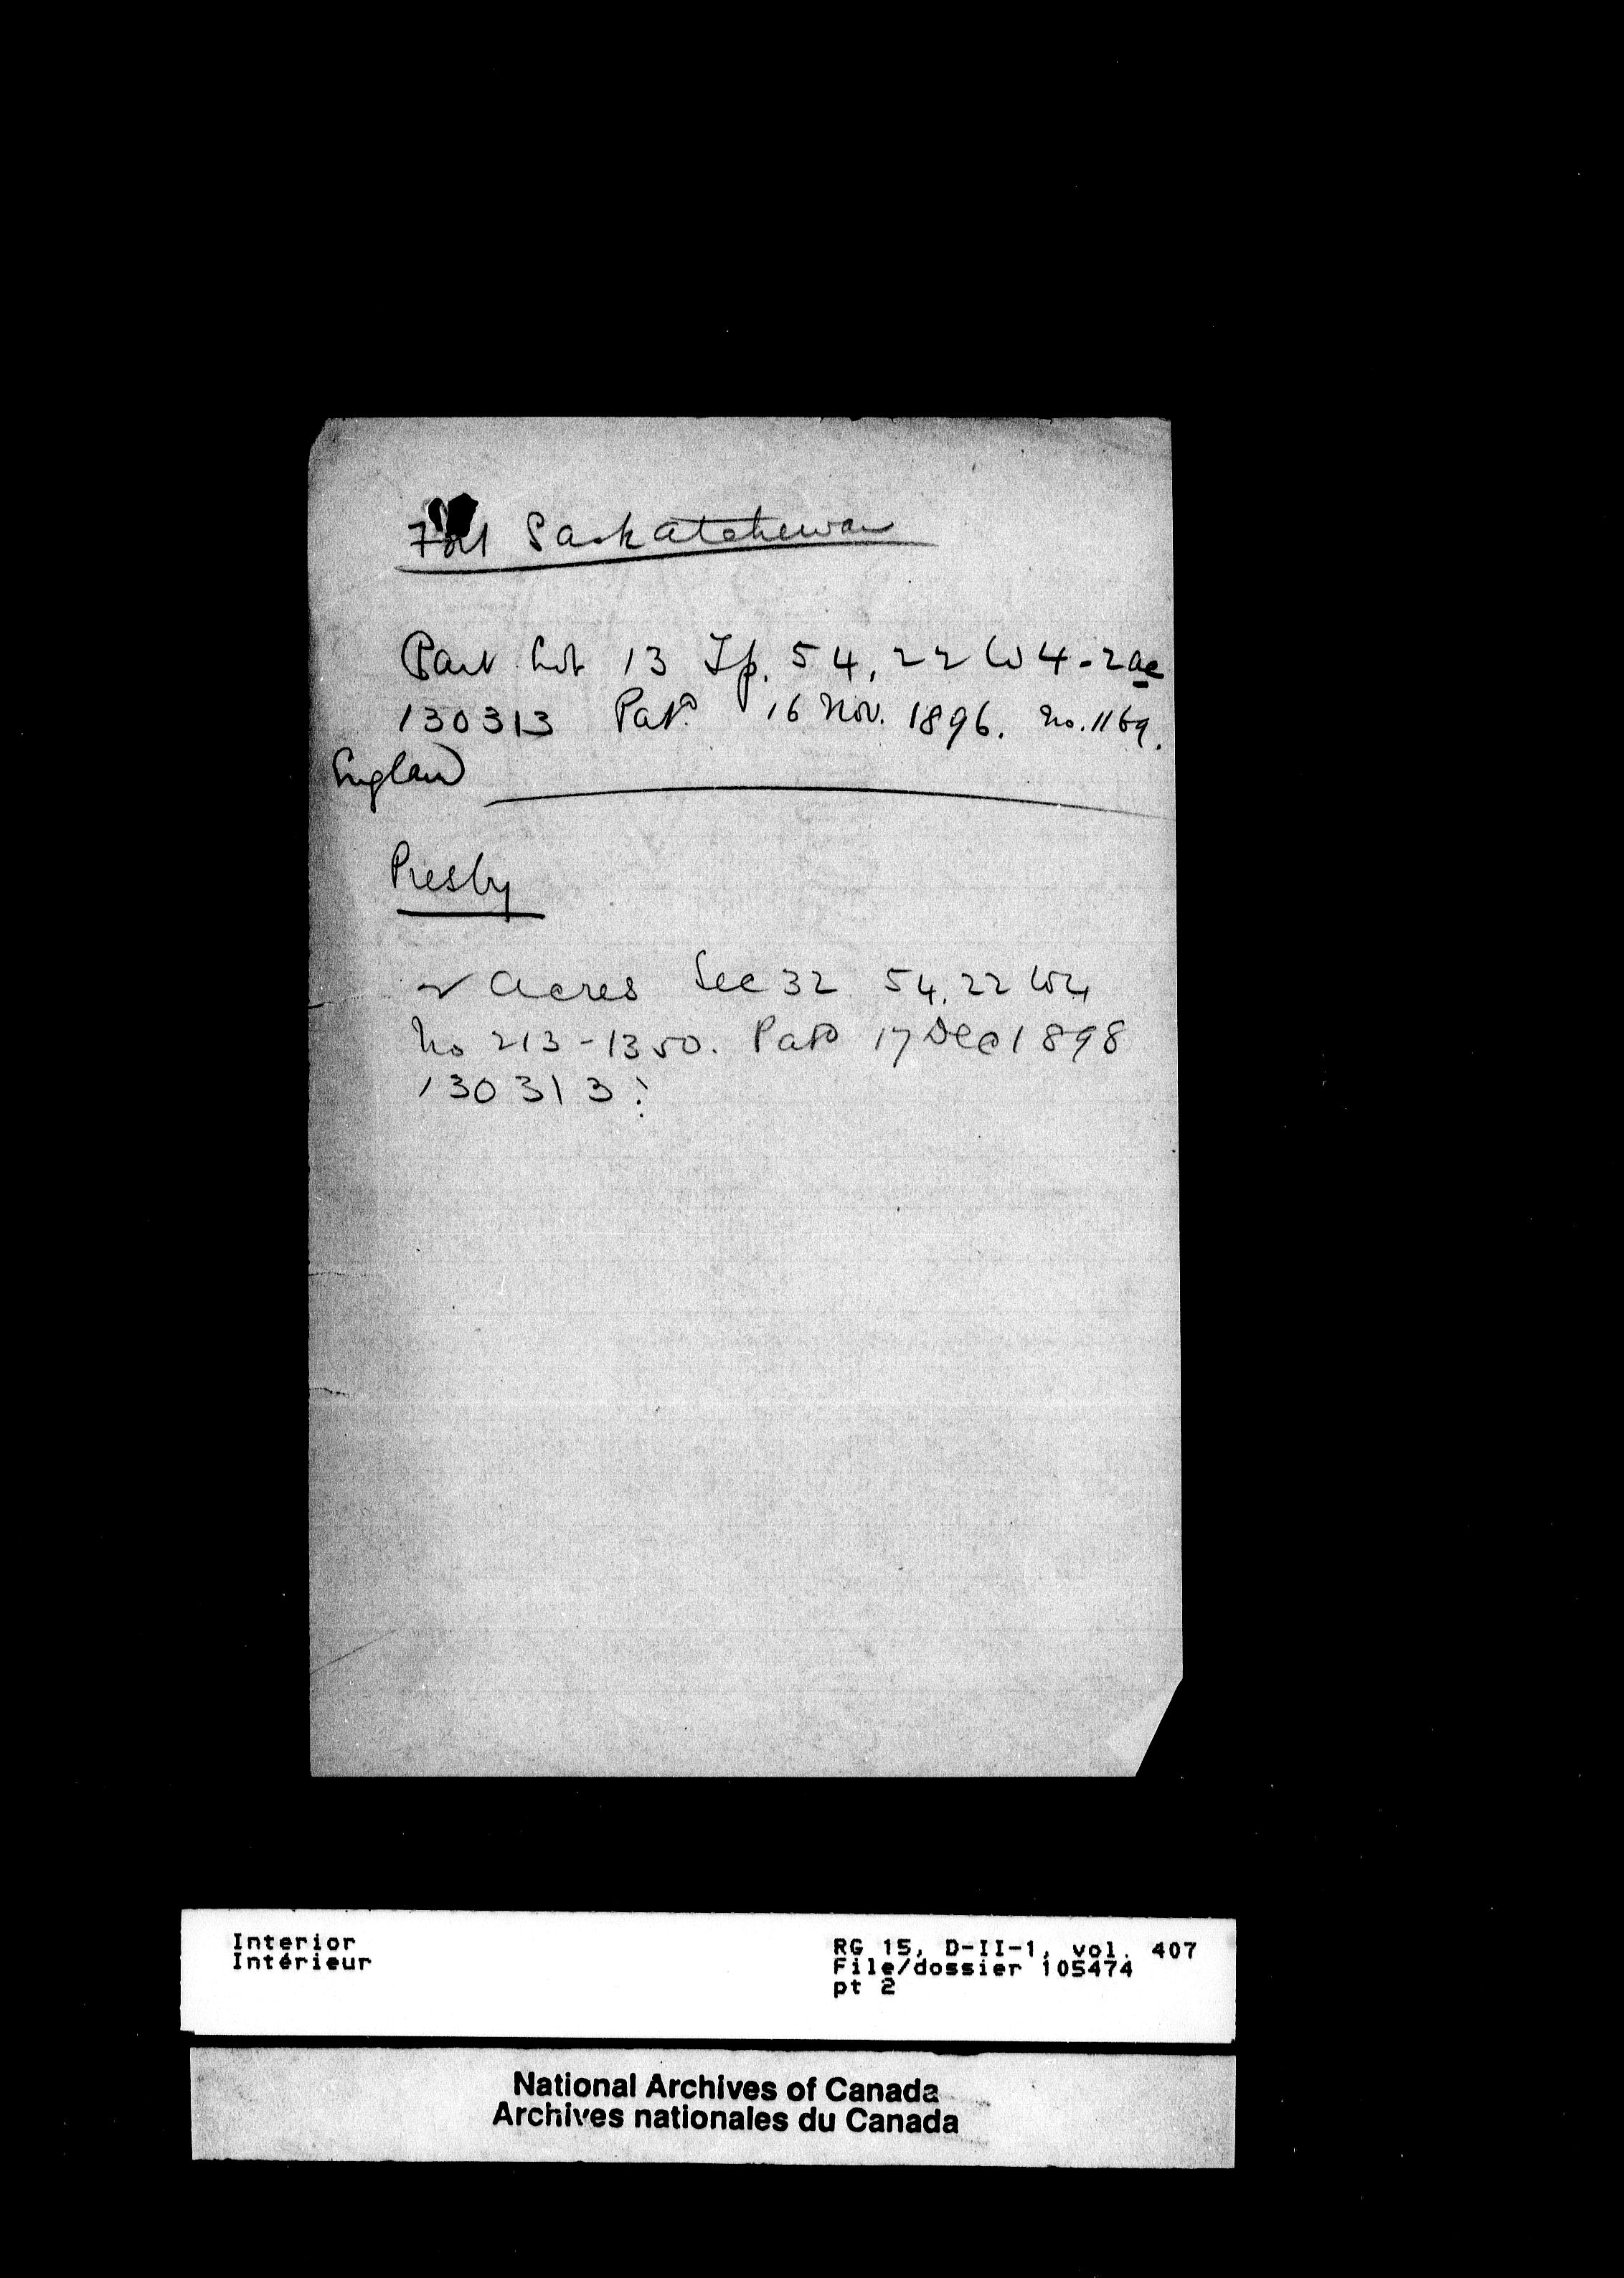 Fort Saskatchewan
Part Lot 13 Tp. 54, 22 W 4 - 2 ac
130313 Patd 16 Nov. 1896. No. 1169.
England
Presby
2 Acres Sec 32 54, 22 W4
No 213 - 1350. Patd 17 Dec 1898
130313:
Interior
Intérieur
RG 15, D-II-1, vol. 407
File/dossier 105474
pt 2
National Archives of Canada
Archives nationales du Canada